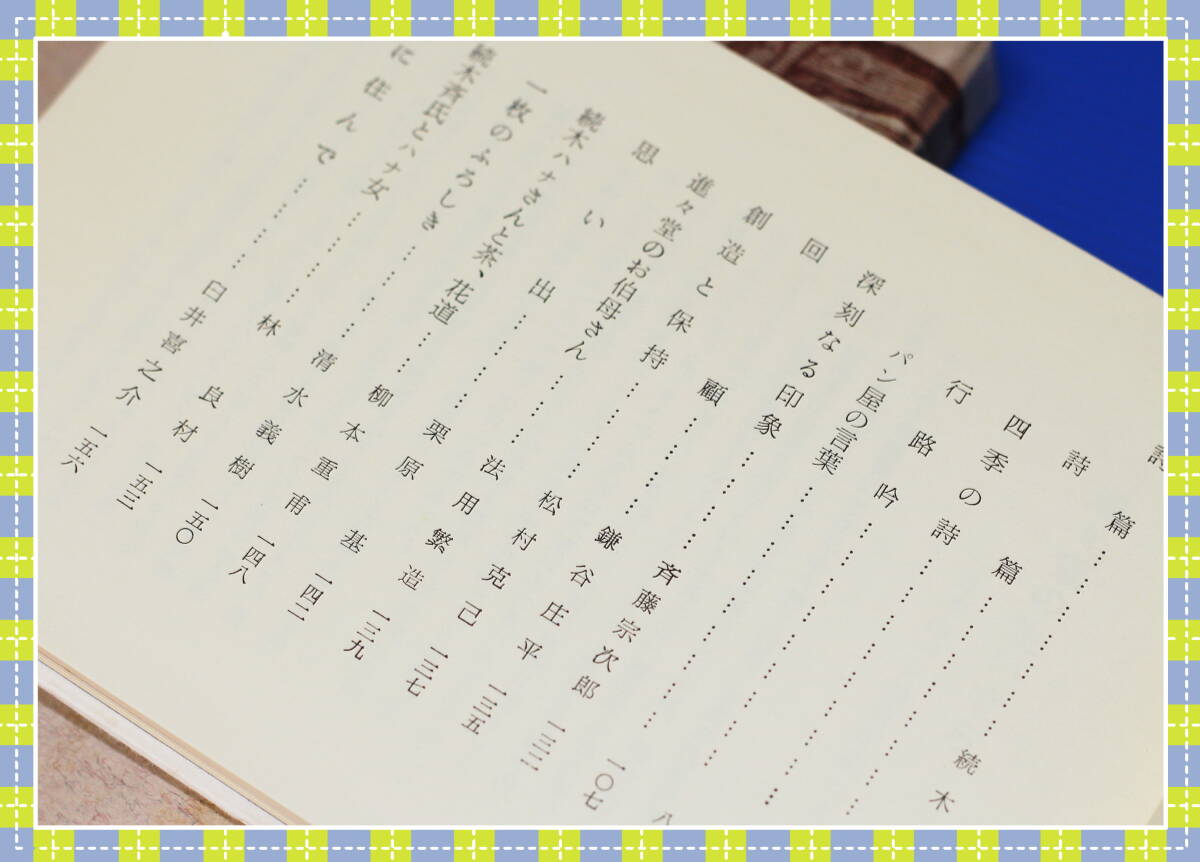 詩篇……………………続木
詩篇……………………
四季の詩……………………
行路吟……………………八
パン屋の言葉……………………一〇七
深刻なる印象…………斉藤宗次郎 一三二
回顧…………鎌谷庄平 一三五
創造と保持…………松村克己 一三七
進々堂のお伯母さん…………法用繁造 一三九
思い出…………栗原基 一四二
続木ハナさんと茶、花道……柳本重甫 一四八
一枚のふろしき…………清水義樹 一五〇
続木斉氏とハナ女…………林良材 一五三
に住んで…………臼井喜之介 一五六